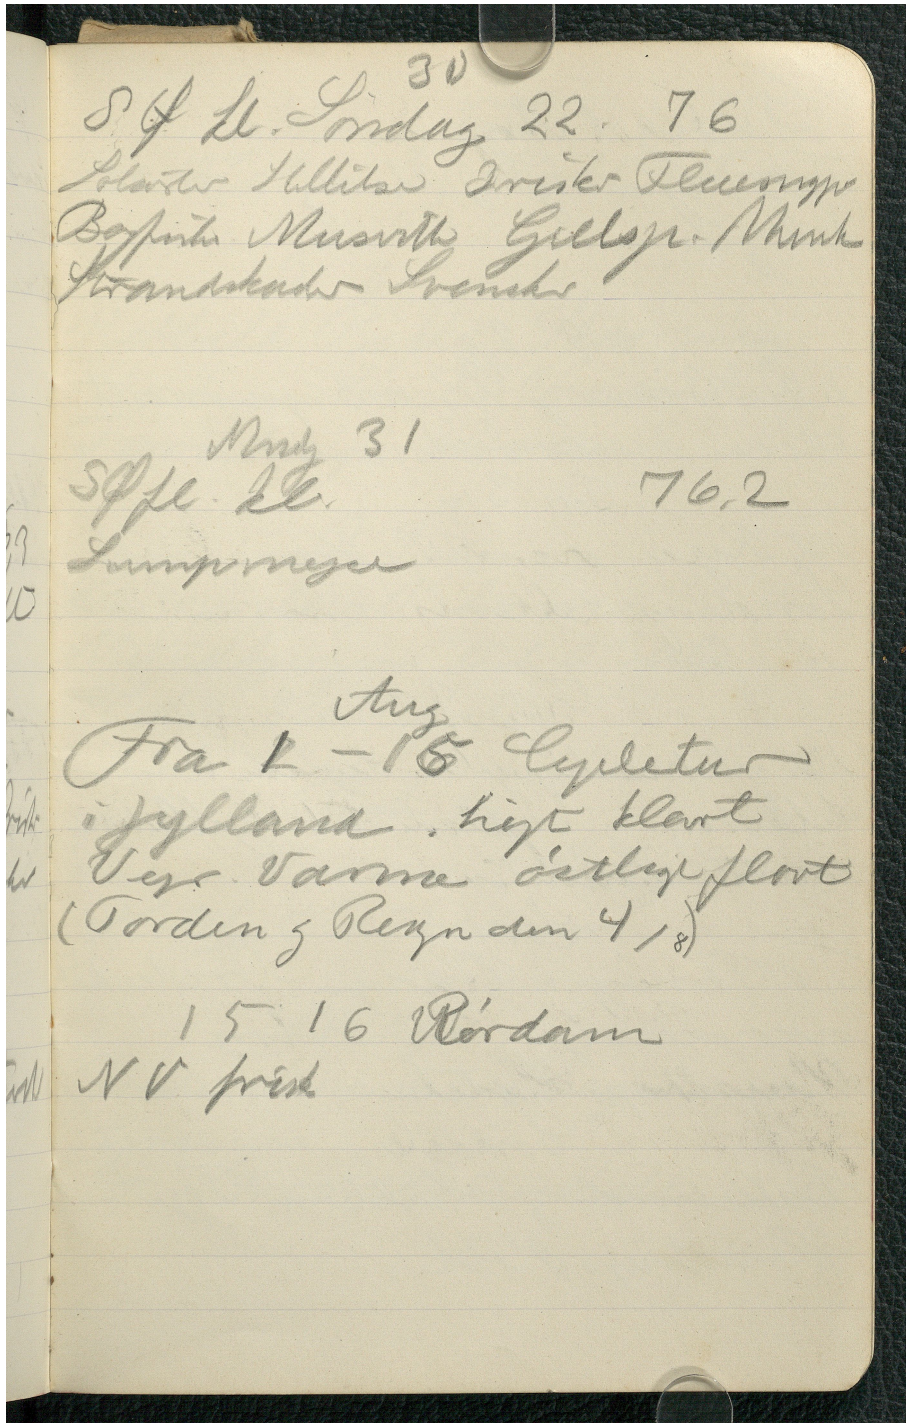 30
SØ kl. Søndag 22. 76
Solsorter Stillitser Irisker Fluesnapp
Bogfinke Musvitter Gulsp. Munk
Strandskader Svensker
Mndg 31
SØ fl. kl. 76.2
Sumpmejse
Aug
Fra 1 – 15 Cycletur
i Jylland. højt klart
Vejr Varme østlig flovt
(Torden og Regn den 4/8)
15 16 Rørdam
NV frisk